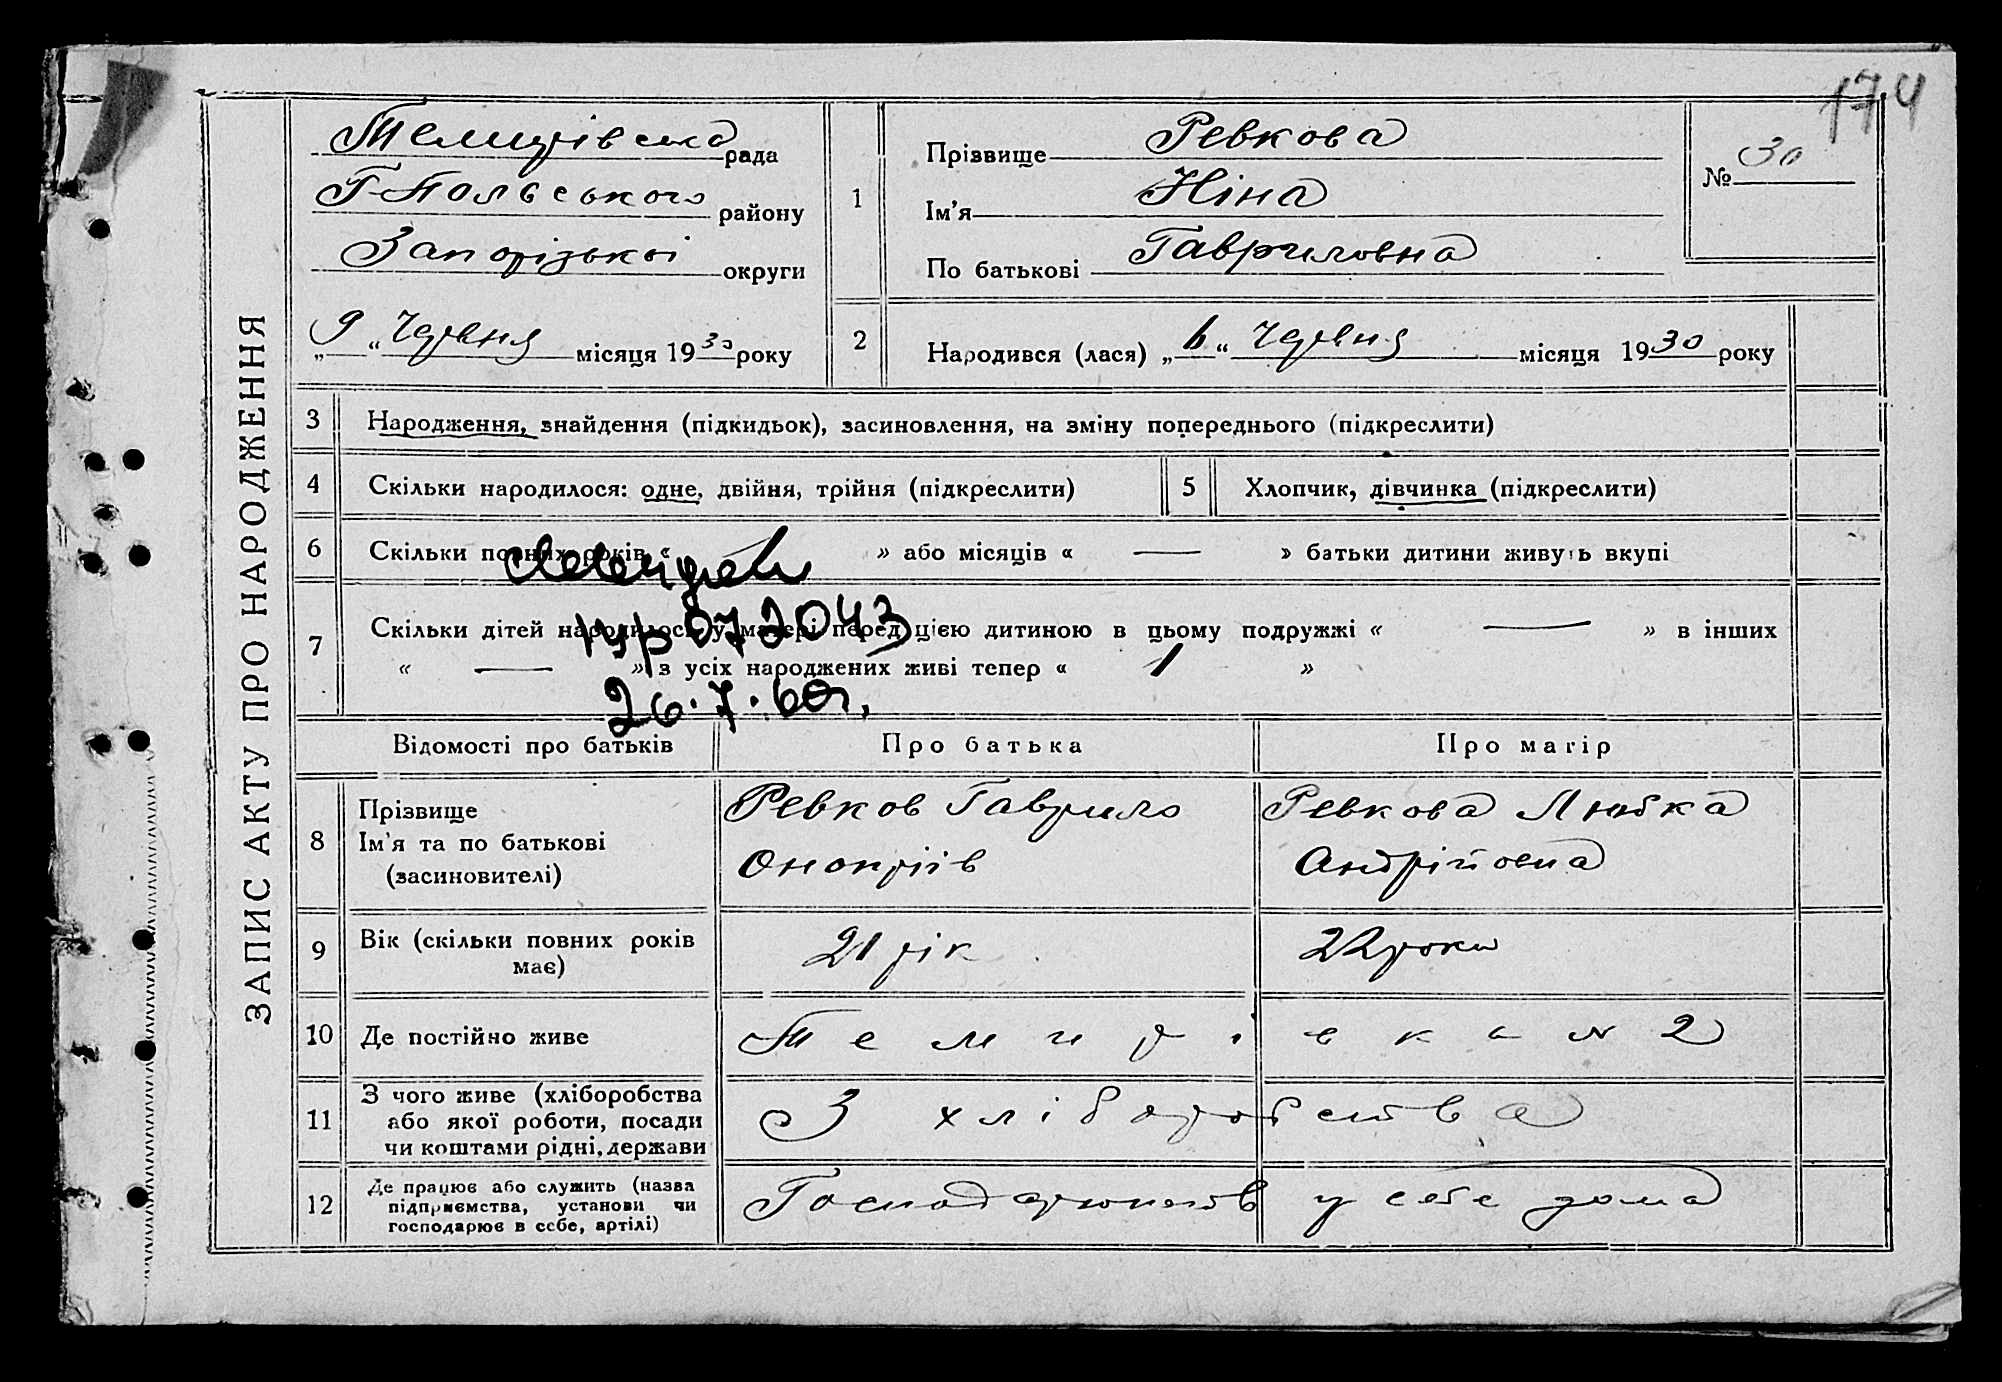 174
ЗАПИС АКТУ ПРО НАРОДЖЕННЯ
Темирівська рада
Г-Польського району
Запорізької округи
„9“ Червня місяця 1930 року
1
Прізвище Ревкова
Ім'я Ніна
По батькові Гавриловна
№ 30
2
Народився (лася) „6“ Червня місяця 1930 року
3 Народження, знайдення (підкидьок), засиновлення, на зміну попереднього (підкреслити)
4 Скільки народилося: одне, двійня, трійня (підкреслити) 5 Хлопчик, дівчинка (підкреслити)
6 Скільки повних років « » або місяців « — » батьки дитини живуть вкупі
7 Скільки дітей народилось у матері перед цією дитиною в цьому подружжі « — » в інших
« — » з усіх народжених живі тепер « 1 »
072043
26.7.60г.
Відомості про батьків Про батька Про матір
8 Прізвище
Ім'я та по батькові
(засиновителі)
Ревков Гаврило
Онопріів
Ревкова Любка
Андрійовна
9 Вік (скільки повних років
має)
21 рік 22 роки
10 Де постійно живе Темирівка N 2
11 З чого живе (хліборобства
або якої роботи, посади
чи коштами рідні, держави
З хліборобства
12 Де працює або служить (назва
підприємства, установи чи
господарює в себе, артілі)
у себе дома